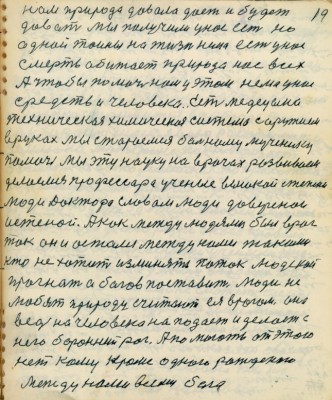 нам природа довала дает и будет 19
довать мы получим у нас ест но
одной тайны на жизн нема ест у нас
смерть обитает природа нас всех
А чтобы помоч нам у этом нема у нас
средств и человека. Ест медецина
техническая химическая система с оружием
в руках мы стараемся болному мученику
помоч мы эту науку на врачах розвиваем
делаемся профессара ученые великой степени
люди Доктора словам люди довереной
истеной. А как между людями был враг
так он и осталса между нами такими
кто не хотит изминять поток людской
прогнат а богов поставить. Люди не
любят природу считают ея врогом она
беду на человека нападает и делает с
него бараний рог. А помогать от этого
нет кому Кроме одного рожденого
между нами всеми бога